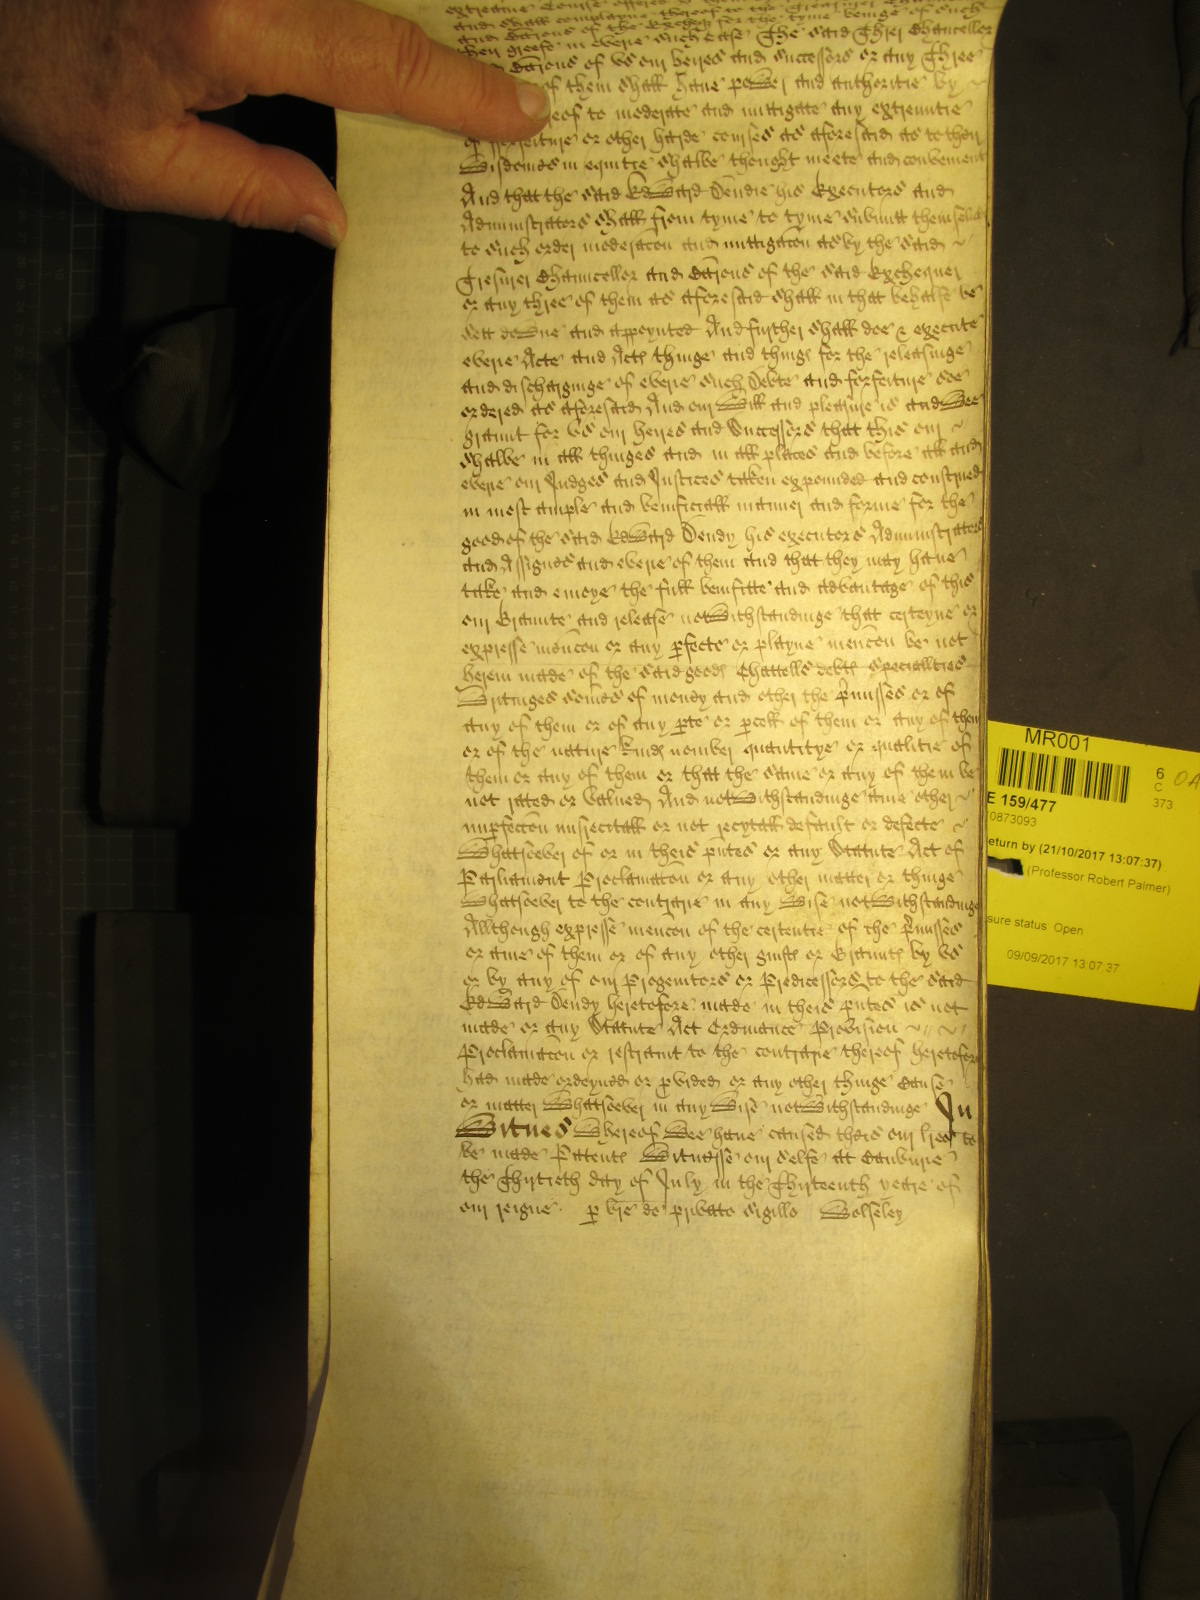 extreame Course offered
and shall complayne thereof to the Treasurer
and Barons of the Exchequer for the tyme beinge of such
their greefe in everie such case The said Thrēr Chancellor
Barons of us our heires and Successors or any Three
of them shall have power and authoritie by
to moderate and mitigate any extremitie
of forfeiture or other harde courses as aforesaid as to their
Wisdomes in equitie shalbe thought meete and convenient
And that the said Edward Dendie his Executors and
Administrators shall from tyme to tyme submitt themselves
to such order moderacōn and mittigacōn as by the said
Tresurer Chauncellor and Barons of the said Exchequer
or any three of them as aforesaid shall in that behalfe be
sett downe and appoynted And further shall doe & execute
everie Acte and Acts thinge and things for the releasinge
and discharginge of everie such Debte and forfeiture soe
ordered as aforesaid And our Will and pleasure is and Wee
graunt for us our heires and Successors that this our
shalbe in all thinges and in all places and before all and
everie our Judges and Justices taken expounded and construed
in most ample and beneficiall manner and forme for the
good of the said Edward Dendy his executors Administrators
and Assignes and everie of them and that they may have
take and enioye the full benifitte and advantage of this
our Graunte and release notwithstandinge that certeyne or
expresse mencōn or any pfecte or playne mencōn be not
herein made of the said goods Chattells debts specialities
Writinges somēs of money and other the Pmisses or of
any of them or of any pte or pcell of them or any of them
or of the nature kinds nomber quantitye or qualitie of
them or any of them or that the same or any of them be
not rated or valued And notwithstandinge anie other
impfeccōn misrecitall or not recytall default or defecte
Whatsoever of or in theis pntes or any Statute Act of
Parliament Proclamacōn or any other matter or thinge
Whatsoever to the contrarie in any Wise notwithstandinge
Allthough expresse mencōn of the certentie of the Pmisses
or anie of them or of any other guifts or Graunts by us
or by any of our Progenitors or Predicessors to the said
Edward Dendy heretofore made in theis pntes is not
made or any Statute Act Ordinance Provision
Proclamacōn or restraint to the contrarie thereof heretofore
had made ordeyned or pvided or any other thinge Cause
or matter Whatsoever in any Wise notwithstandinge In
Witnes Whereof Wee have caused theis our lres to
be made Patents Witnesse our selfe at Canburie
the Thirtieth day of July in the Thirteenth yeare of
our reigne p bre de privato sigillo Wolseley
MR001
6
C
373
E 159/477
0873093
eturn by (21/10/2017 13:07:37)
(Professor Robert Palmer)
sure status Open
09/09/2017 13:07:37